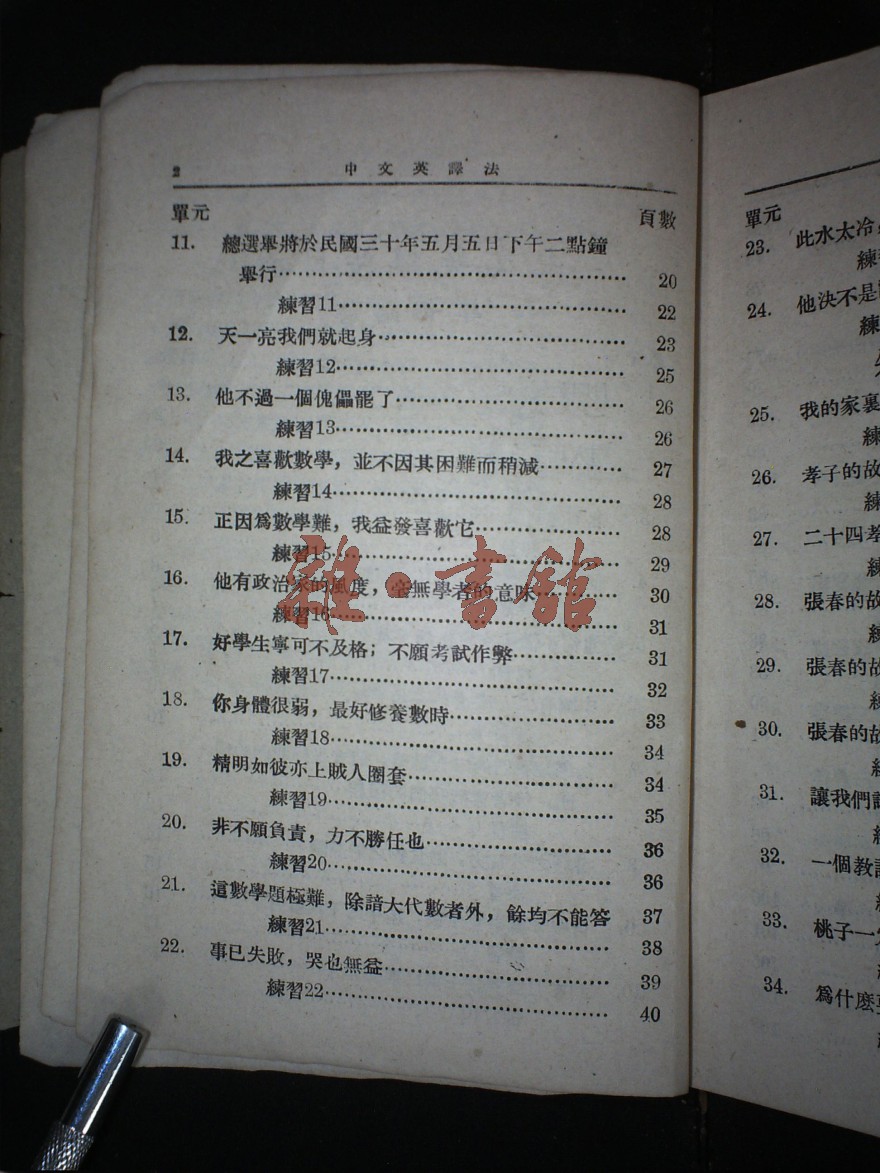 2 中文英譯法
單元 頁數
11. 總選舉將於民國三十年五月五日下午二點鐘
舉行 20
練習11 22
12. 天一亮我們就起身 23
練習12 25
13. 他不過一個傀儡罷了 26
練習13 26
14. 我之喜歡數學，並不因其困難而稍減 27
練習14 28
15. 正因爲數學難，我益發喜歡它 28
練習15 29
16. 他有政治家的風度，全無學者的意味 30
練習16 31
17. 好學生寧可不及格；不願考試作弊 31
練習17 32
18. 你身體很弱，最好修養數時 33
練習18 34
19. 精明如彼亦上賊人圈套 34
練習19 35
20. 非不願負責，力不勝任也 36
練習20 36
21. 這數學題極難，除諳大代數者外，餘均不能答 37
練習21 38
22. 事已失敗，哭也無益 39
練習22 40
雜·書館
單元
23. 此水太冷，
練
24. 他決不是
練
25. 我的家裏
練
26. 孝子的故
練
27. 二十四孝
練
28. 張春的故
練
29. 張春的故
練
30. 張春的故
練
31. 讓我們
32. 一個教
33. 桃子一
34. 爲什麽